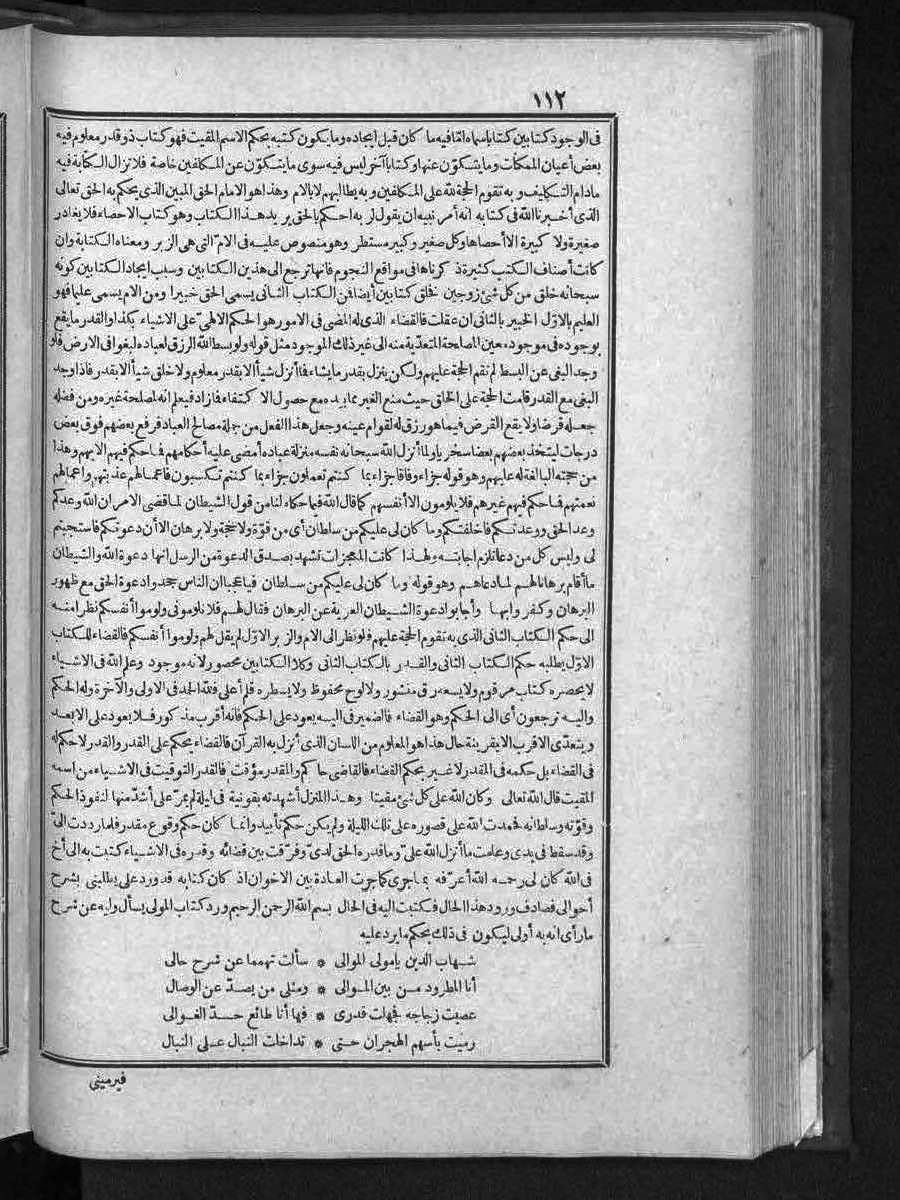 ١١٢
فى الوجود كتابين كتابا سماه أما فيه ما كان قبل ايجاده وما يكون كتبه بحكم الاسم المقيت فهو كتاب ذو قدر معلوم فيه
بعض أعيان الممكنات وما يتكوّن عنها وكتابا آخر ليس فيه سوى ما يتكوّن عن المكلفين خاصة فلا تزال الكتابة فيه
مادام التكليف وبه تقوم الحجة لله على المكلفين وبه يطالبهم لا بالام وهذا هو الامام الحق المبين الذى يحكم به الحق تعالى
الذى أخبرنا الله فى كتابه انه أمر نبيه ان يقول لربه احكم بالحق يريد هذا الكتاب وهو كتاب الاحصاء فلا يغادر
صغيرة ولا كبيرة الا أحصاها وكل صغير وكبير مستطر وهو منصوص عليه فى الامّ التى هى الزبر ومعناه الكتابة وان
كانت أصناف الكتب كثيرة ذكرناها فى مواقع النجوم فانها ترجع الى هذين الكتابين وسبب ايجاد الكتابين كونه
سبحانه خلق من كل شئ زوجين فخلق كتابين أيضا فن الكتاب الثانى يسمى الحق خبيرا ومن الام يسمى عليما فهو
العليم بالاوّل الخبير بالثانى ان عقلت فالقضاء الذى له المضى فى الامور هو الحكم الالهىّ على الاشياء بكذا والقدر ما يقع
بوجوده فى موجود معين المصلحة المتعدّية منه الى غير ذلك الموجود مثل قوله ولو بسط الله الرزق لعباده لبغوا فى الارض فلو
وجد البغى عن البسط لم تقم الحجة عليهم ولكن ينزل بقدر ما يشاء فما أنزل شيأ الا بقدر معلوم ولا خلق شيأ الا بقدر فاذا وجد
البغى مع القدر قامت الحجة على الخلق حيث منع الغير مما بيده مع حصول الاكتفاء فما زاد فيعلم انه لمصلحة غيره ومن فضله
جعله قرضا ولا يقع القرض فيما هو رزق له لقوام عينه وجعل هذا الفعل من جملة مصالح العباد فرفع بعضهم فوق بعض
درجات ليتخذ بعضهم بعضا سخريا ولما أنزل الله سبحانه نفسه منزلة عباده أمضى عليه أحكامهم فما حكم فيهم الا بهم وهذا
من حجته البالغة له عليهم وهو قوله جزاء وفاقا جزاء بما كنتم تعملون جزاء بما كنتم تكسبون فأعمالهم عذبتهم وأعمالهم
نعمتهم فما حكم فيهم غيرهم فلا يلومون الا أنفسهم كما قال الله فيما حكاه لنا من قول الشيطان لما قضى الامر ان الله وعدكم
وعد الحق ووعدتكم فأخلفتكم وما كان لى عليكم من سلطان أى من قوّة ولا حجة ولا برهان الا أن دعوتكم فاستجبتم
لى وليس كل من دعا تلزم اجابته ولهذا كانت المعجزات تشهد بصدق الدعوة من الرسل انها دعوة الله والشيطان
ما أقام برهانا لهم لما دعاهم وهو قوله وما كان لى عليكم من سلطان فيا عجبا ان الناس جحدوا دعوة الحق مع ظهور
البرهان وكفروا بها وأجابوا دعوة الشيطان العرية عن البرهان فقال لهم فلا تلومونى ولوموا أنفسكم نظرا منه
الى حكم الكتاب الثانى الذى به تقوم الحجة عليهم فلو نظر الى الام والزبر الاوّل لم يقل لهم ولوموا أنفسكم فالقضاء للكتاب
الاوّل يطلبه حكم الكتاب الثانى والقدر بالكتاب الثانى وكلا الكتابين محصور لانه موجود وعلم الله فى الاشياء
لا يحصره كتاب مرقوم ولا يسعه رق منشور ولا لوح محفوظ ولا يسطره قلم أعلى فلله الحمد فى الاولى والآخرة وله الحكم
واليه ترجعون أى الى الحكم وهو القضاء فالضمير فى اليه يعود على الحكم فانه أقرب مذكور فلا يعود على الابعد
ويتعدّى الاقرب الا بقرينة حال هذا هو المعلوم من اللسان الذى أنزل به القرآن فالقضاء يحكم على القدر والقدر لا حكم له
فى القضاء بل حكمه فى المقدر لا غير بحكم القضاء فالقاضى حاكم والمقدر مؤقت فالقدر التوقيت فى الاشياء من اسمه
المقيت قال الله تعالى وكان الله على كل شئ مقيتا وهذا المنزل أشهدته بقونية فى ليلة لم يمرّ علىّ أشدّ منها لنفوذ الحكم
وقوّته وسلطانه فحمدت الله على قصوره على تلك الليلة ولم يكن حكم تأبيد وانما كان حكم وقوع مقدر فلما رددت الىّ
وقد سقط فى يدى وعلمت ما أنزل الله علىّ وما قدره الحق لدىّ وفرّقت بين قضائه وقدره فى الاشياء كتبت به الى أخ
فى الله كان لى رحمه الله أعرّفه بما جرى كما جرت العادة بين الاخوان اذ كان كتابه قد ورد علىّ يطلبنى بشرح
أحوالى فصادف ورود هذا الحال فكتبت اليه فى الحال بسم الله الرحمن الرحيم ورد كتاب المولى يسأل وليه عن شرح
ما رأى انه به أولى ليكون فى ذلك بحكم ما يرد عليه
شهاب الدين يا مولى الموالى * سألت تهمما عن شرح حالى
أنا المطرود من بين الموالى * ومثلى من يصدّ عن الوصال
عصيت زجاجه فجهلت قدرى * فها أنا طائع حدّ العوالى
رميت بأسهم الهجران حتى * تداخلت النبال على النبال
فيرمينى